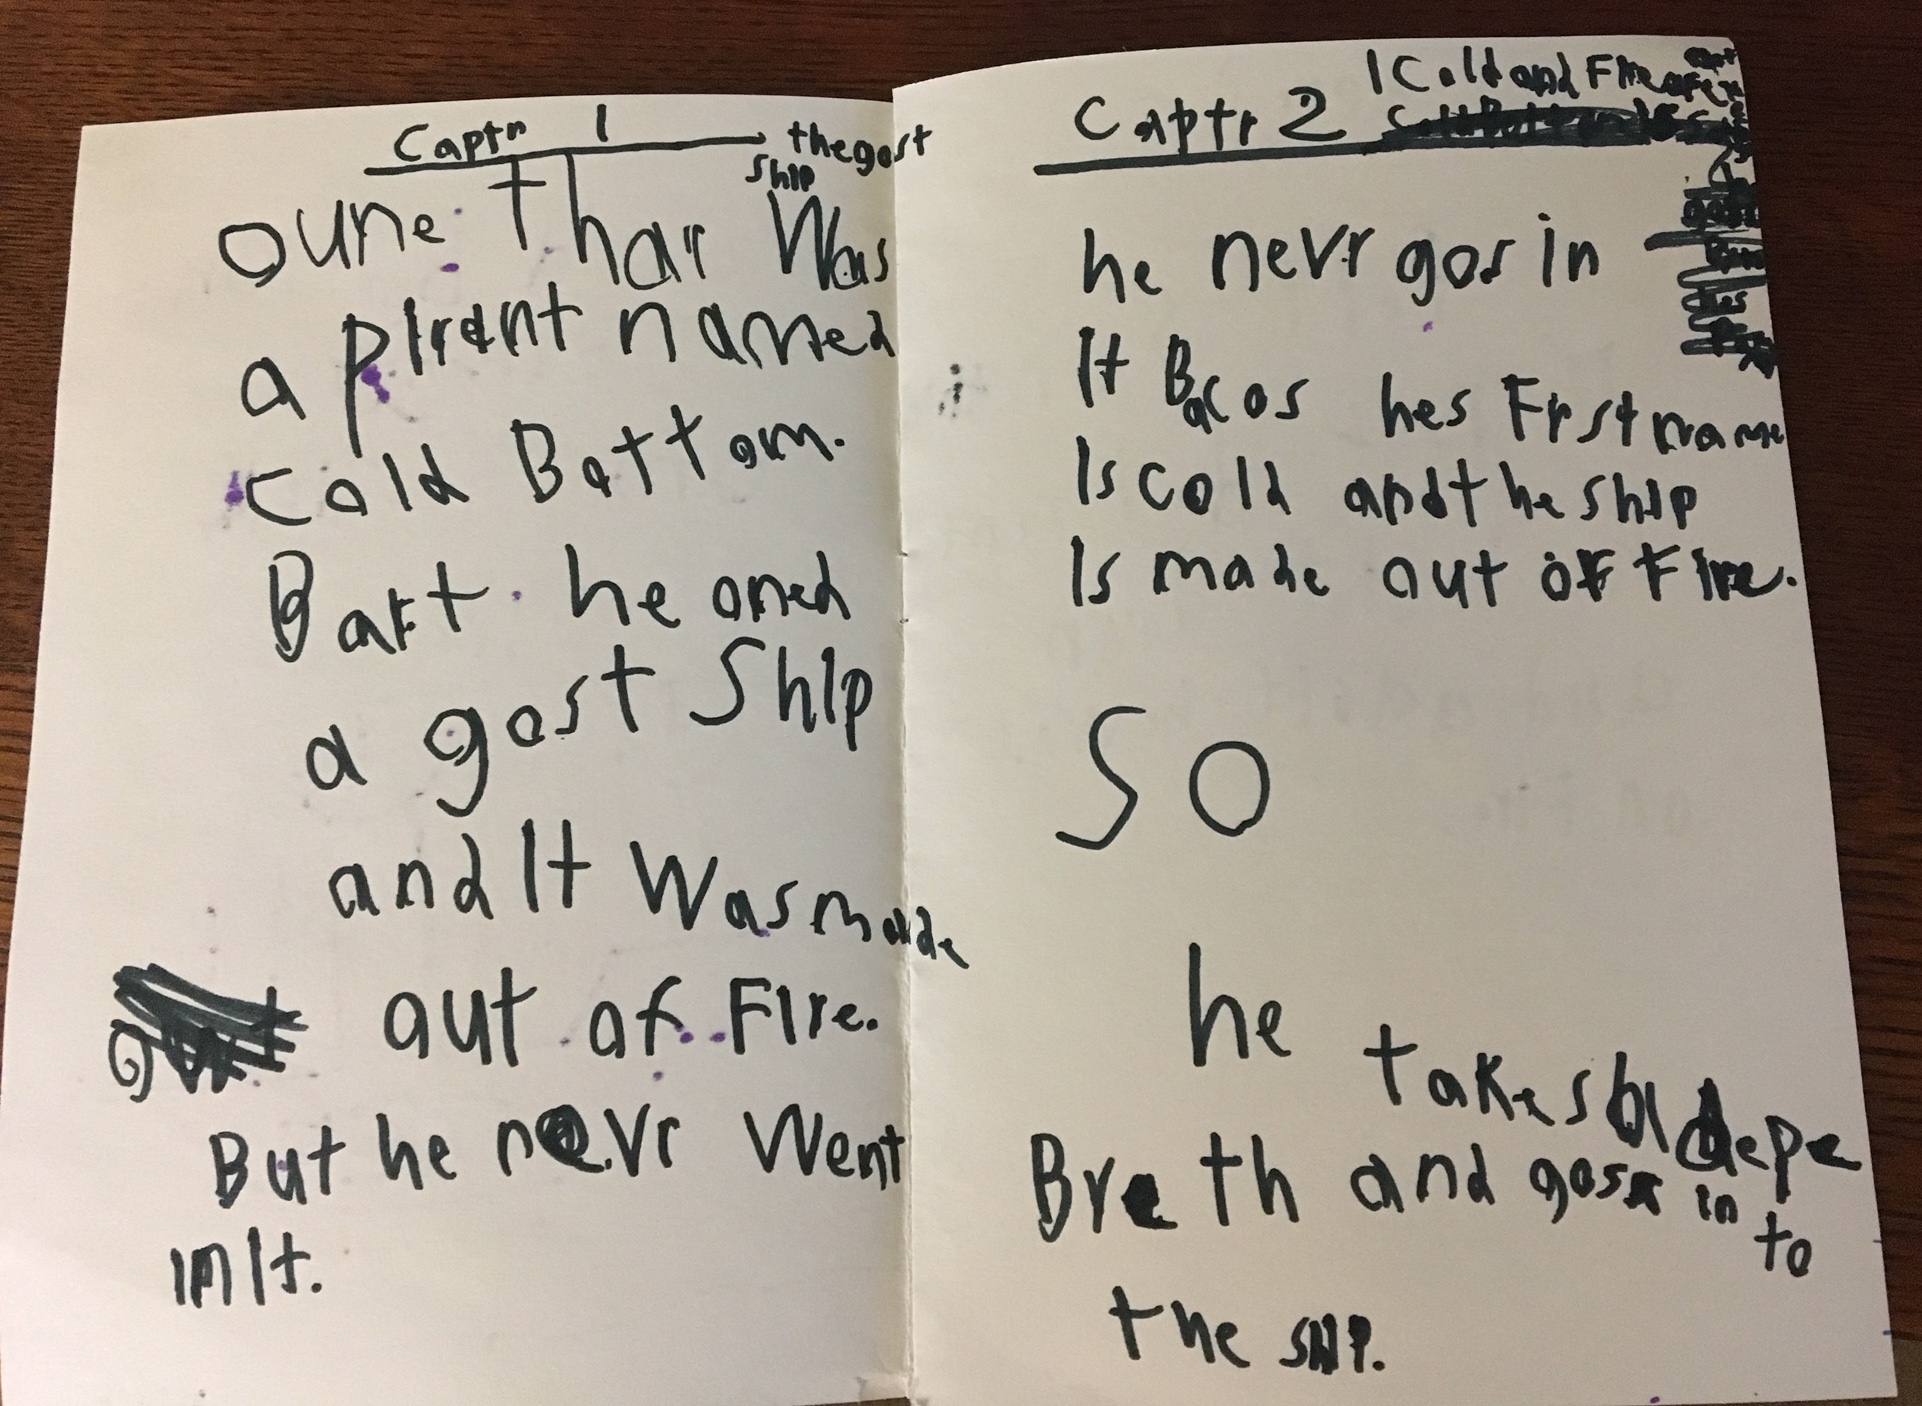 Captr 1 the gost
Ship
oune thar Was
a pirant named
Cold Bottom.
Bart. he oned
a gost Ship
and It Was made
out of Fire.
But he nevr Went
in It.
Captr 2 Cold and Fire are
he nevr gos in
It Bacos hes Frst name
Is cold and the ship
Is made out of Fire.
SO
he takes a depe
Breth and gos in to
the SHIP.